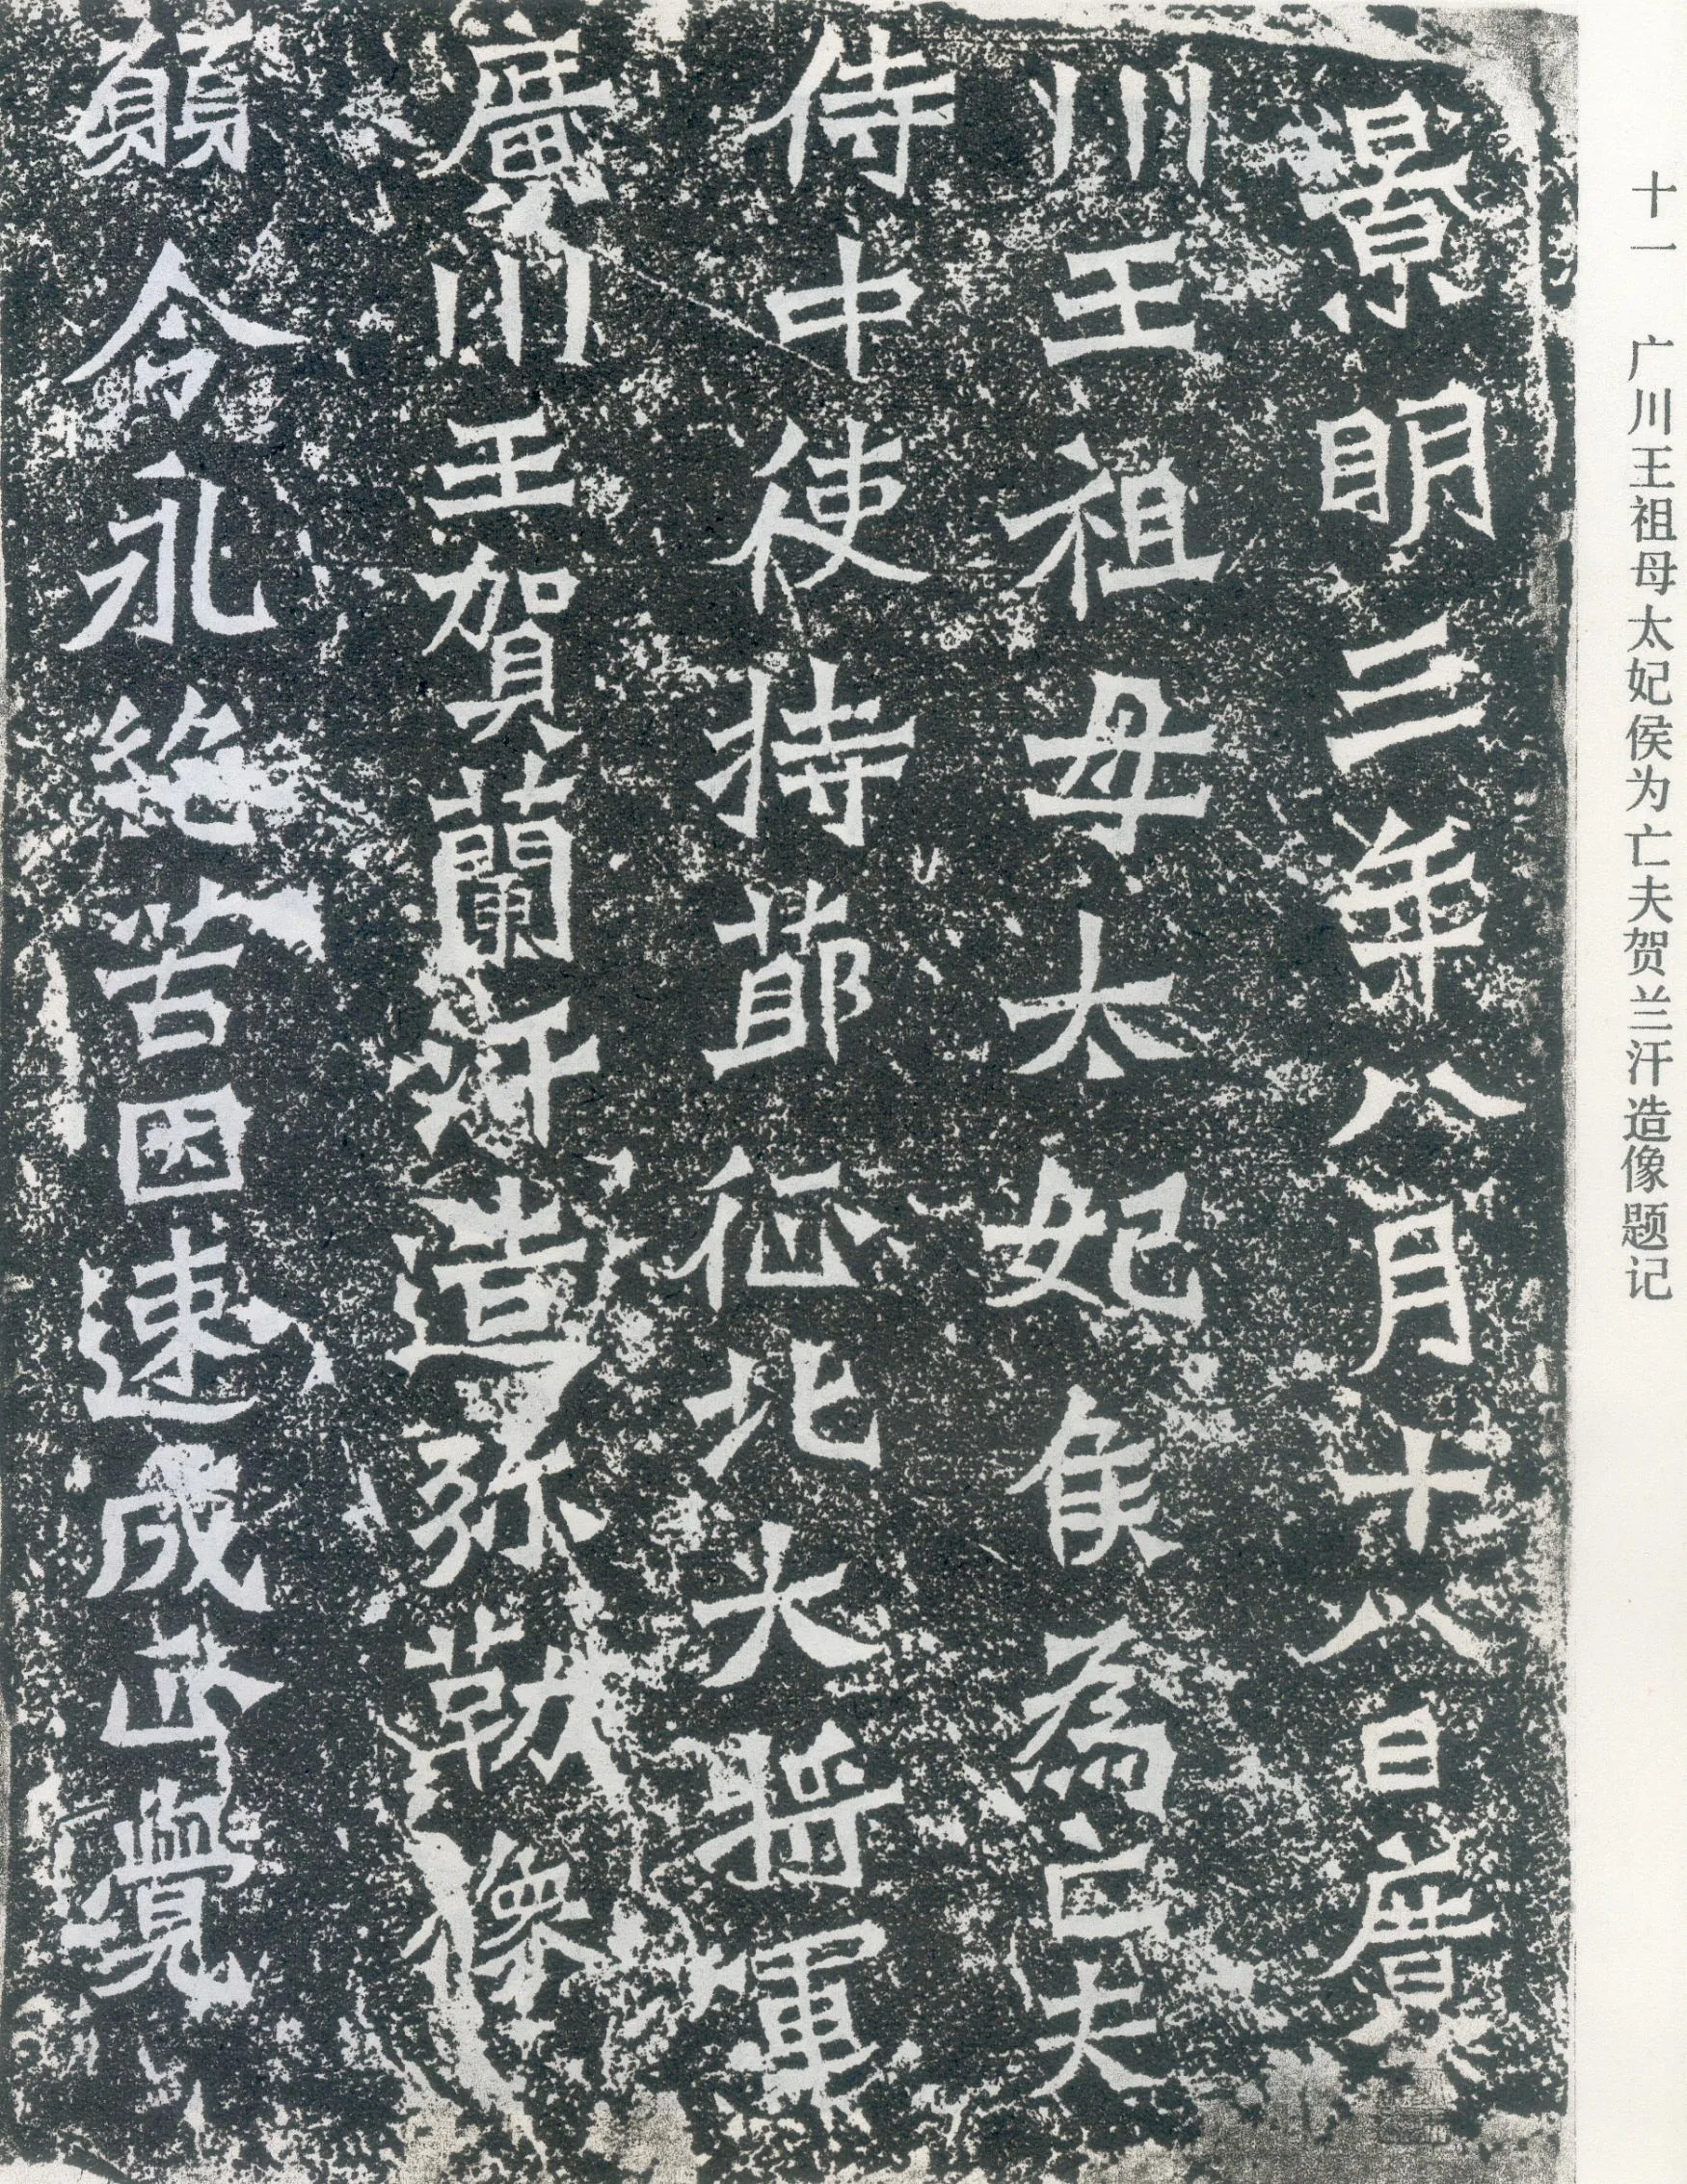 十一 广川王祖母太妃侯为亡夫贺兰汗造像题记
景明三年八月十八日廣
川王祖母太妃侯為亡夫
侍中使持節征北大將軍
廣川王賀蘭汗造弥勒像
願令永絶苦因速成正覺